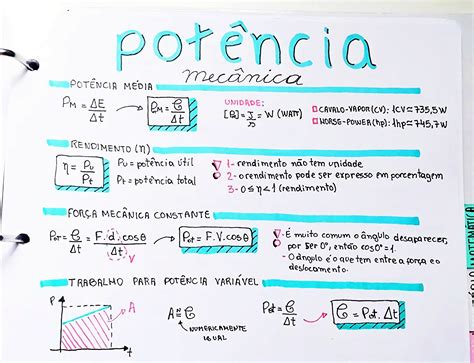 potência
mecânica
POTÊNCIA MÉDIA
PM = ΔE/Δt → PM = ℭ/Δt
UNIDADE:
[P] = J/s = W (WATT)
CAVALO-VAPOR (CV): 1CV = 735,5W
HORSE-POWER (hp): 1hp = 745,7W
RENDIMENTO (η)
η = Pu/Pt
Pu = potência útil
Pt = potência total
1- rendimento não tem unidade
2- o rendimento pode ser expresso em porcentagem
3- 0 ≤ η < 1 (rendimento)
FORÇA MECÂNICA CONSTANTE
Pot = ℭ/Δt = F.d.cosθ/Δt → Pot = F.V.cosθ
V
- É muito comum o ângulo desaparecer,
por ser 0°, então cos0° = 1.
- O ângulo é o que tem entre a força e o
deslocamento.
TRABALHO PARA POTÊNCIA VARIÁVEL
P
A
t
A N= ℭ
NUMERICAMENTE
IGUAL
Pot = ℭ/Δt → ℭ = Pot. Δt
MATEMÁTICA